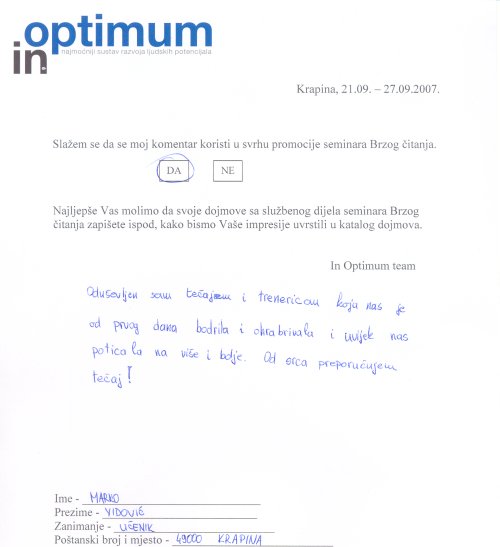 in optimum
najmoćniji sustav razvoja ljudskih potencijala
Krapina, 21.09. – 27.09.2007.
Slažem se da se moj komentar koristi u svrhu promocije seminara Brzog čitanja.
DA NE
Najljepše Vas molimo da svoje dojmove sa službenog dijela seminara Brzog
čitanja zapišete ispod, kako bismo Vaše impresije uvrstili u katalog dojmova.
In Optimum team
Oduševljen sam tečajem i trenericom koja nas je
od prvog dana bodrila i ohrabrivala i uvijek nas
poticala na više i bolje. Od srca preporučujem
tečaj!
Ime - MARKO
Prezime - VIDOVIĆ
Zanimanje - UČENIK
Poštanski broj i mjesto - 49000 KRAPINA